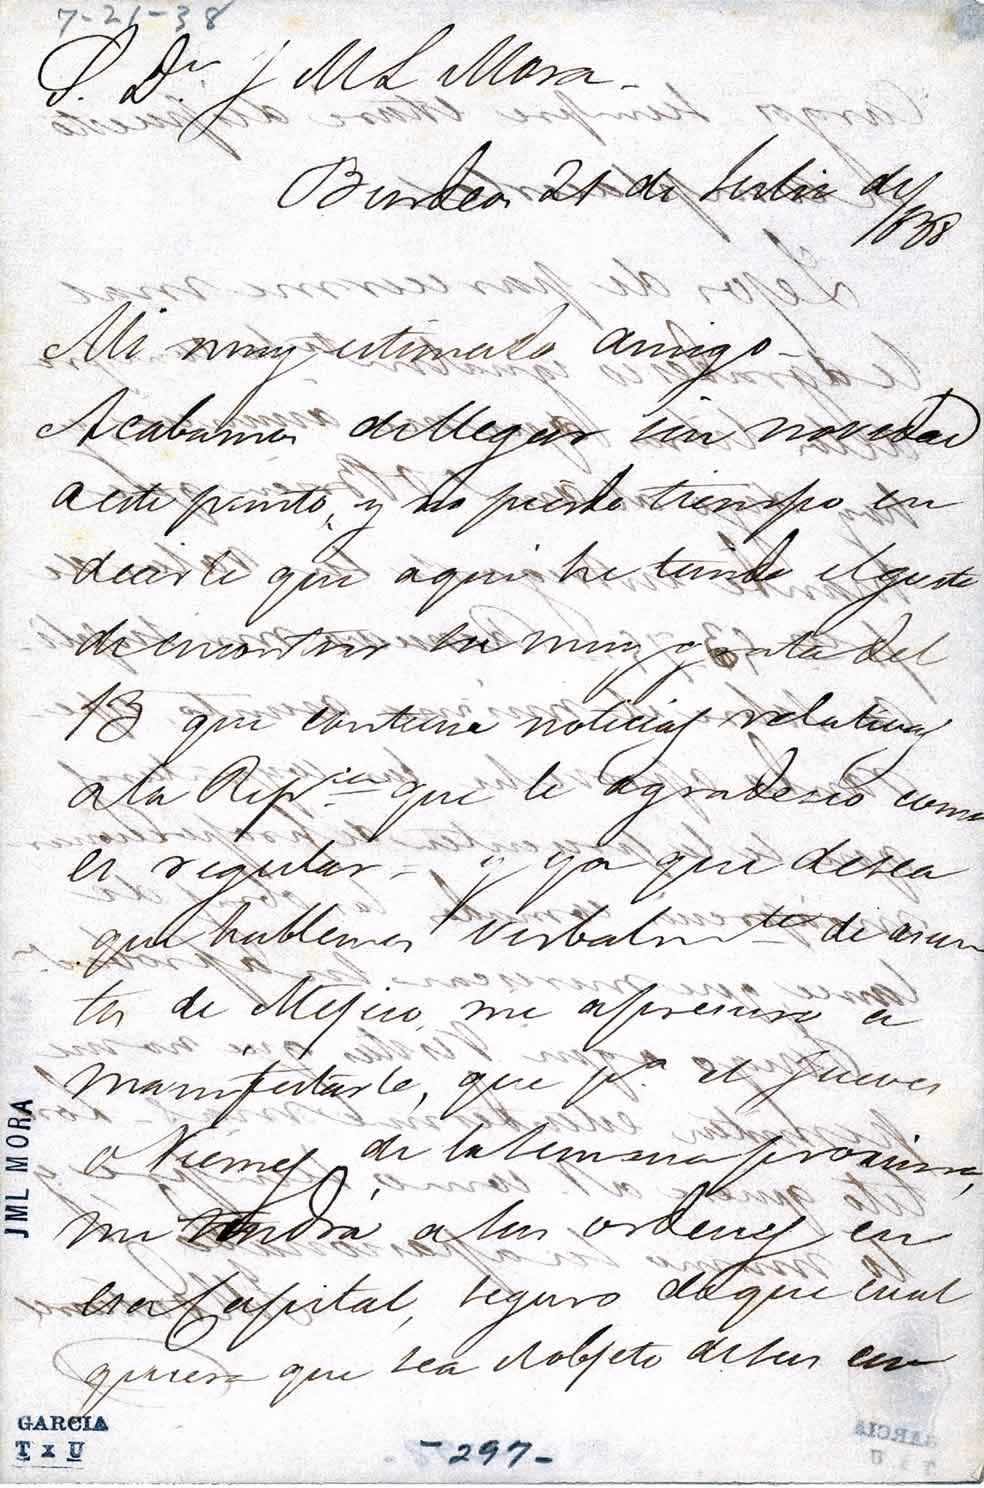 7-21-38
S. Dn J M L Mora.
Burdeos 21 de Julio de
1838
Mi muy estimado amigo.
Acabamos de llegar sin novedad
a este punto, y no pierdo tiempo en
decirle que aqui he tenido el gusto
de encontrar su muy grata del
13 que contiene noticias relativas
a la Repca que le agradesco como
es regular = y ya que desea
que hablemos verbalmte de asun
tos de Mejico, me apresuro a
manifestarle, que pa el Jueves
o Viernes de la semana proxima,
me tendrá a sus ordenes en
esa Capital, seguro de que cual
quiera que sea el objeto de sus en
JML MORA
GARCIA
T x U
- 297 -